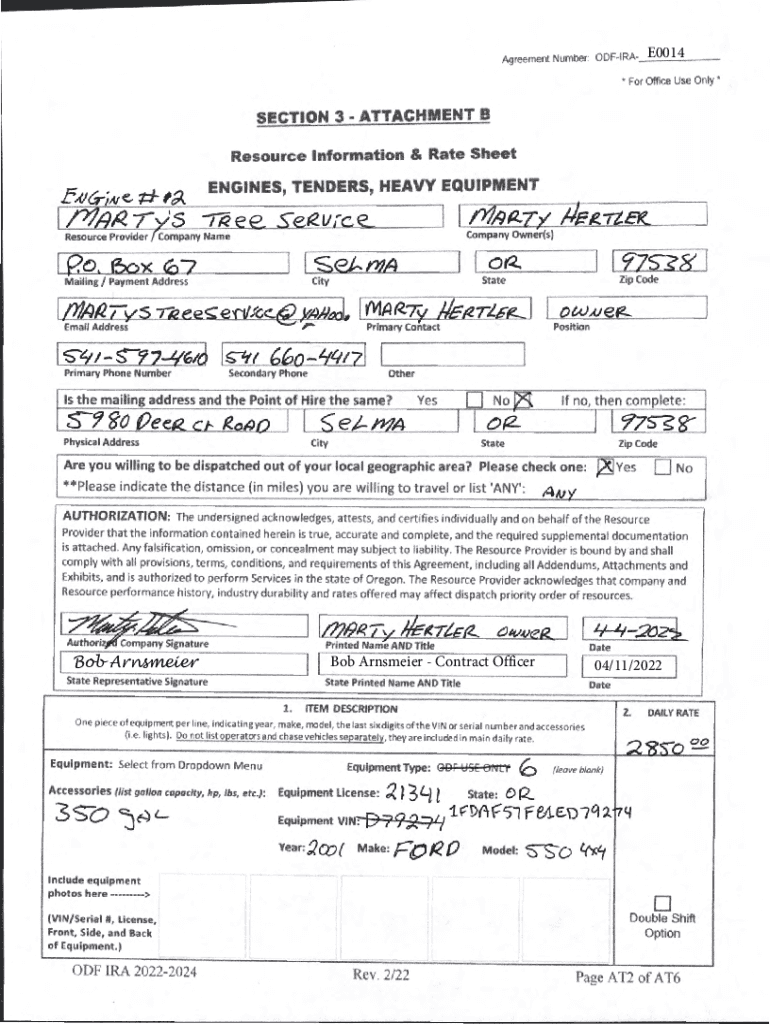 Agreement Number: ODF-IRA- E0014
* For Office Use Only *
SECTION 3 - ATTACHMENT B
Resource Information & Rate Sheet
ENGINES, TENDERS, HEAVY EQUIPMENT
ENGINE # #2
MARTYS TREE SERVICE MARTY HERTLER
Resource Provider / Company Name Company Owner(s)
P.O. BOX 67 SELMA OR 97538
Mailing / Payment Address City State Zip Code
MARTYSTREESERVICE@YAHOO. MARTY HERTLER OWNER
Email Address Primary Contact Position
541-597-4610 541 660-4417
Primary Phone Number Secondary Phone Other
Is the mailing address and the Point of Hire the same? Yes No X If no, then complete:
5980 DEER Cr ROAD SELMA OR 97538
Physical Address City State Zip Code
Are you willing to be dispatched out of your local geographic area? Please check one: X Yes No
**Please indicate the distance (in miles) you are willing to travel or list 'ANY': ANY
AUTHORIZATION: The undersigned acknowledges, attests, and certifies individually and on behalf of the Resource
Provider that the information contained herein is true, accurate and complete, and the required supplemental documentation
is attached. Any falsification, omission, or concealment may subject to liability. The Resource Provider is bound by and shall
comply with all provisions, terms, conditions, and requirements of this Agreement, including all Addendums, Attachments and
Exhibits, and is authorized to perform Services in the state of Oregon. The Resource Provider acknowledges that company and
Resource performance history, industry durability and rates offered may affect dispatch priority order of resources.
MARTY HERTLER OWNER 4-4-2022
Authorized Company Signature Printed Name AND Title Date
Bob Arnsmeier Bob Arnsmeier - Contract Officer 04/11/2022
State Representative Signature State Printed Name AND Title Date
1. ITEM DESCRIPTION 2. DAILY RATE
One piece of equipment per line, indicating year, make, model, the last six digits of the VIN or serial number and accessories
(i.e. lights). Do not list operators and chase vehicles separately, they are included in main daily rate.
2850 00
Equipment: Select from Dropdown Menu Equipment Type: ODF USE ONLY 6 (leave blank)
Accessories (list gallon capacity, hp, lbs, etc.): Equipment License: 21341 State: OR
350 gAL
Equipment VIN: D79274 1FDAF57F81ED79274
Year: 2001 Make: FORD Model: 550 4x4
Include equipment
photos here ---------->
(VIN/Serial #, License,
Front, Side, and Back
of Equipment.)
Double Shift
Option
ODF IRA 2022-2024 Rev. 2/22 Page AT2 of AT6